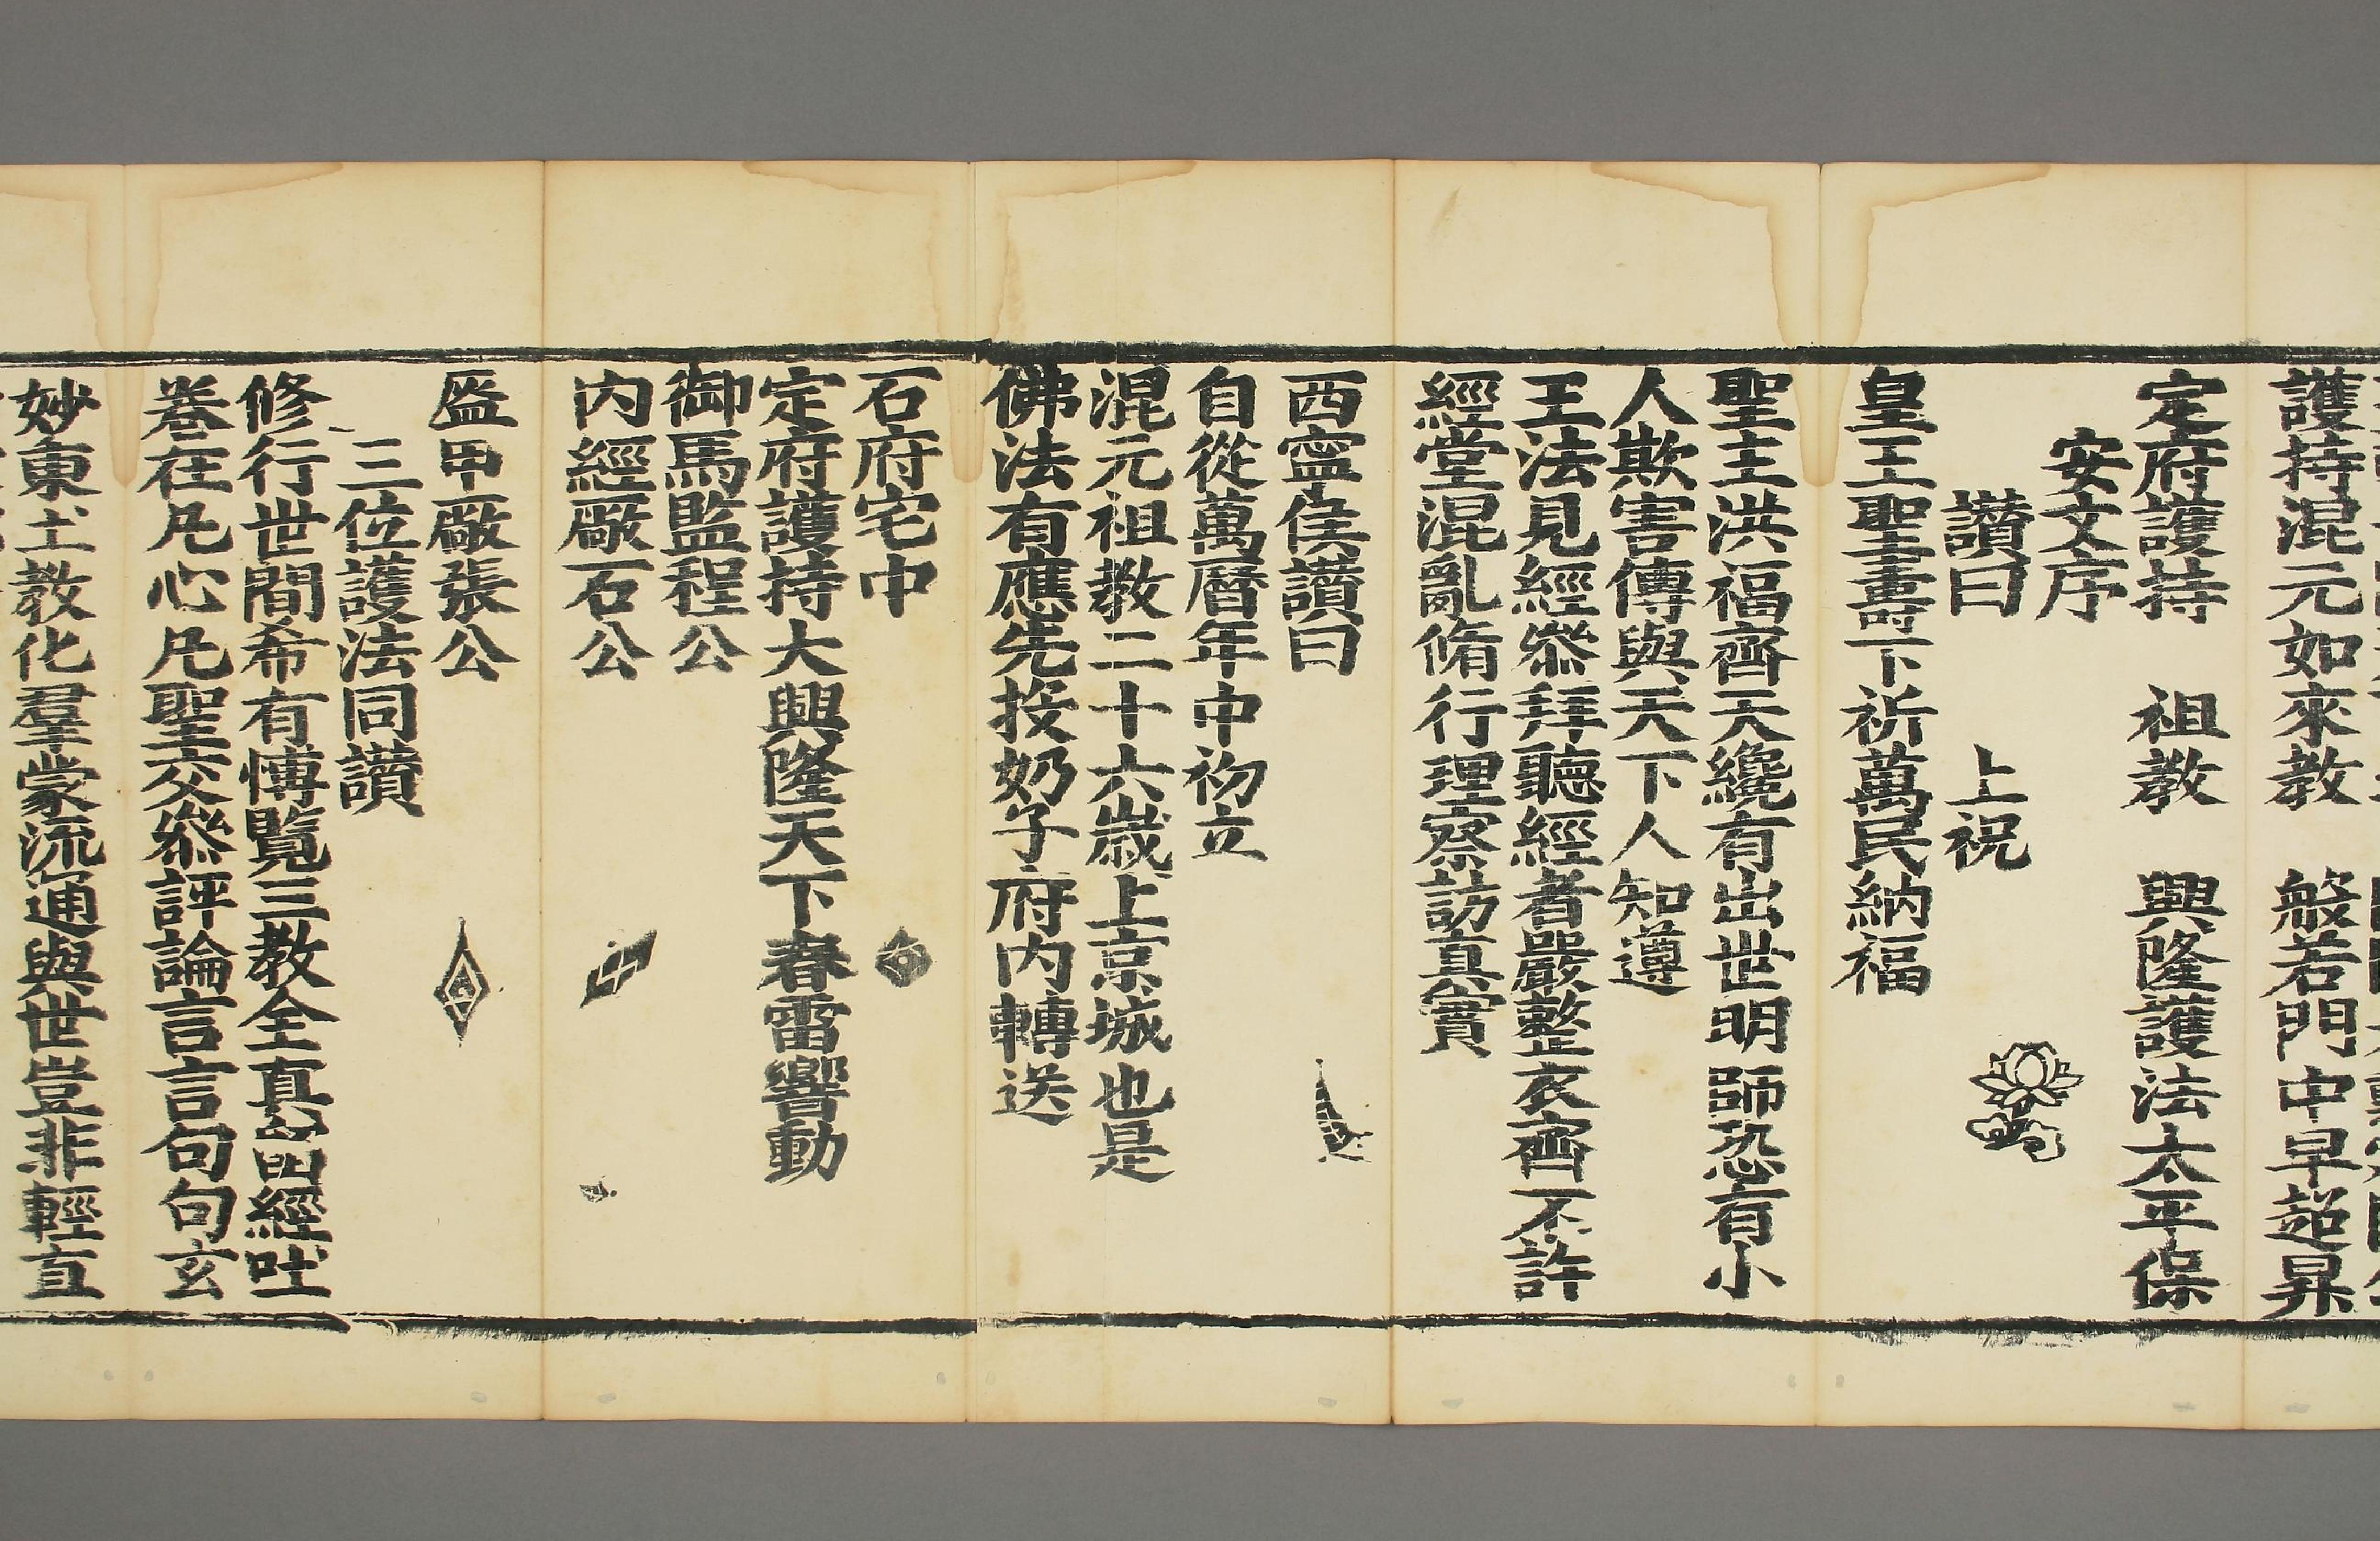 護持混元如來教　般若門中早超昇
定府護持　祖教　興隆護法太平保
安文序
讃曰　　上祝
皇王聖壽下祈萬民納福
聖主洪福齊天纔有出世明師恐有小
人欺害傳與天下人知遵
王法見經叅拜聽經者嚴整衣齊不許
經堂混亂脩行理察訪真實
西寧侯讃曰
自從萬曆年中初立
混元祖教二十六歲上京城也是
佛法有應先投奶子府內轉送
石府宅中
定府護持大興隆天下春雷響動
御馬監程公
內經厰石公
盔甲厰張公
三位護法同讃
修行世間希有愽覽三教全真留經吐
卷在凡心凡聖交叅評論言言句句玄
妙東土教化羣蒙流通與世豈非輕直